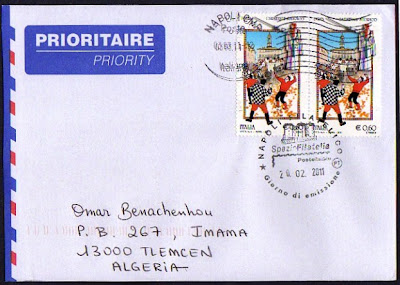 PRIORITAIRE
PRIORITY
NAPOLI CMP
Poste
ITALIA
€ 0,60
NAPOLI FILATELICO
Spazio Filatelia
Posteitaliane
2011
Giorno di emissione
PT
Omar Benachenhou
P.B. 267, IMAMA
13000 TLEMCEN
ALGERIA